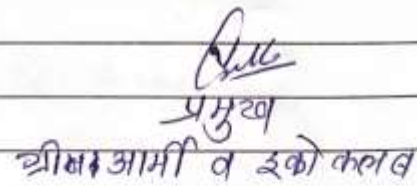 प्रमुख
ग्रीन आर्मी व इको कलब